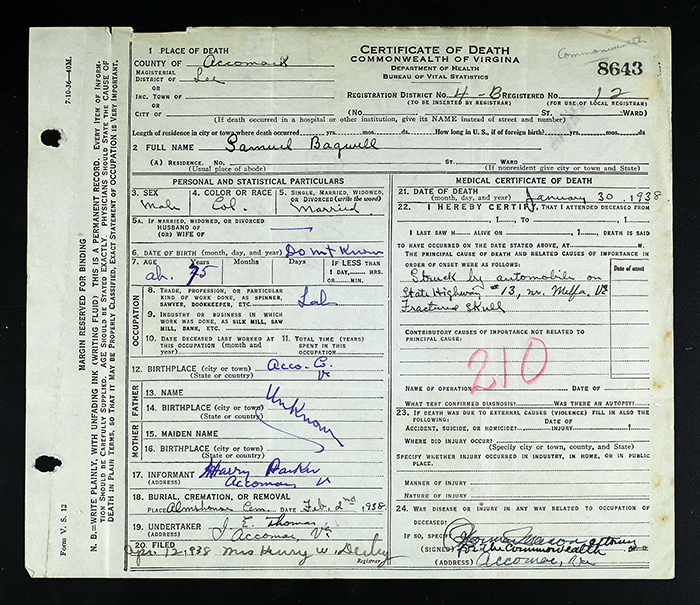 Commonwealth
1 PLACE OF DEATH
CERTIFICATE OF DEATH
COUNTY OF Accomack
COMMONWEALTH OF VIRGINIA
MAGISTERIAL DISTRICT OF Lee
DEPARTMENT OF HEALTH
BUREAU OF VITAL STATISTICS
8643
OR
INC. TOWN OF
REGISTRATION DISTRICT NO. 4-B REGISTERED NO. 12
(TO BE INSERTED BY REGISTRAR) (FOR USE OF LOCAL REGISTRAR)
OR
CITY OF (NO. ST. WARD)
(If death occurred in a hospital or other institution, give its NAME instead of street and number)
Length of residence in city or town where death occurred yrs. mos. ds. How long in U. S., if of foreign birth? yrs. mos. ds.
2 FULL NAME Samuel Bagwell
(A) RESIDENCE. NO. ST. WARD
(Usual place of abode) (If nonresident give city or town and State)
PERSONAL AND STATISTICAL PARTICULARS
3. SEX Male
4. COLOR OR RACE Col.
5. SINGLE, MARRIED, WIDOWED, OR DIVORCED (write the word) Married
5A. IF MARRIED, WIDOWED, OR DIVORCED
HUSBAND OF
(OR) WIFE OF
6. DATE OF BIRTH (month, day, and year) Do not Know
7. AGE Years Months Days IF LESS THAN
ab. 75 1 DAY, HRS.
OR MIN.
OCCUPATION
8. TRADE, PROFESSION, OR PARTICULAR
KIND OF WORK DONE, AS SPINNER,
SAWYER, BOOKKEEPER, ETC. Lab
9. INDUSTRY OR BUSINESS IN WHICH
WORK WAS DONE, AS SILK MILL, SAW
MILL, BANK, ETC.
10. DATE DECEASED LAST WORKED AT
THIS OCCUPATION (month and
year)
11. TOTAL TIME (years)
SPENT IN THIS
OCCUPATION
12. BIRTHPLACE (city or town) Acco. Co.
(State or country) Va
FATHER
13. NAME Unknown
14. BIRTHPLACE (city or town)
(State or country)
MOTHER
15. MAIDEN NAME
16. BIRTHPLACE (city or town)
(State or country)
17 INFORMANT Harry Parker
(ADDRESS) Accomac, V
18. BURIAL, CREMATION, OR REMOVAL
PLACE Almshouse Cem. DATE Feb. 2nd 1938
19. UNDERTAKER J. E. Thomas
(ADDRESS) Accomac, Va
20. FILED Apr. 12 1938 Mrs Henry W.
Registrar
MEDICAL CERTIFICATE OF DEATH
21. DATE OF DEATH
(month, day, and year) January 30, 1938
22. I HEREBY CERTIFY, THAT I ATTENDED DECEASED FROM
, 1 , TO , 1
I LAST SAW H ALIVE ON , 1 DEATH IS SAID
TO HAVE OCCURRED ON THE DATE STATED ABOVE, AT M.
THE PRINCIPAL CAUSE OF DEATH AND RELATED CAUSES OF IMPORTANCE IN
ORDER OF ONSET WERE AS FOLLOWS:
Date of onset
Struck by automobile on
State Highway #13, nr. Melfa, Va
Fractured Skull
CONTRIBUTORY CAUSES OF IMPORTANCE NOT RELATED TO
PRINCIPAL CAUSE:
210
NAME OF OPERATION DATE OF
WHAT TEST CONFIRMED DIAGNOSIS? WAS THERE AN AUTOPSY?
23. IF DEATH WAS DUE TO EXTERNAL CAUSES (VIOLENCE) FILL IN ALSO THE
FOLLOWING: DATE OF
ACCIDENT, SUICIDE, OR HOMICIDE? INJURY , 1
WHERE DID INJURY OCCUR?
(Specify city or town, county, and State)
SPECIFY WHETHER INJURY OCCURRED IN INDUSTRY, IN HOME, OR IN PUBLIC
PLACE.
MANNER OF INJURY
NATURE OF INJURY
24. WAS DISEASE OR INJURY IN ANY WAY RELATED TO OCCUPATION OF
DECEASED?
IF SO, SPECIFY
(SIGNED) Mason, attorney
for the Commonwealth
(ADDRESS) Accomac, Va
7-10-36—40M.
MARGIN RESERVED FOR BINDING
N. B.—WRITE PLAINLY, WITH UNFADING INK (WRITING FLUID) THIS IS A PERMANENT RECORD. EVERY ITEM OF INFORMATION SHOULD BE CAREFULLY SUPPLIED. AGE SHOULD BE STATED EXACTLY. PHYSICIANS SHOULD STATE THE CAUSE OF DEATH IN PLAIN TERMS, SO THAT IT MAY BE PROPERLY CLASSIFIED. EXACT STATEMENT OF OCCUPATION IS VERY IMPORTANT.
Form V. S. 12